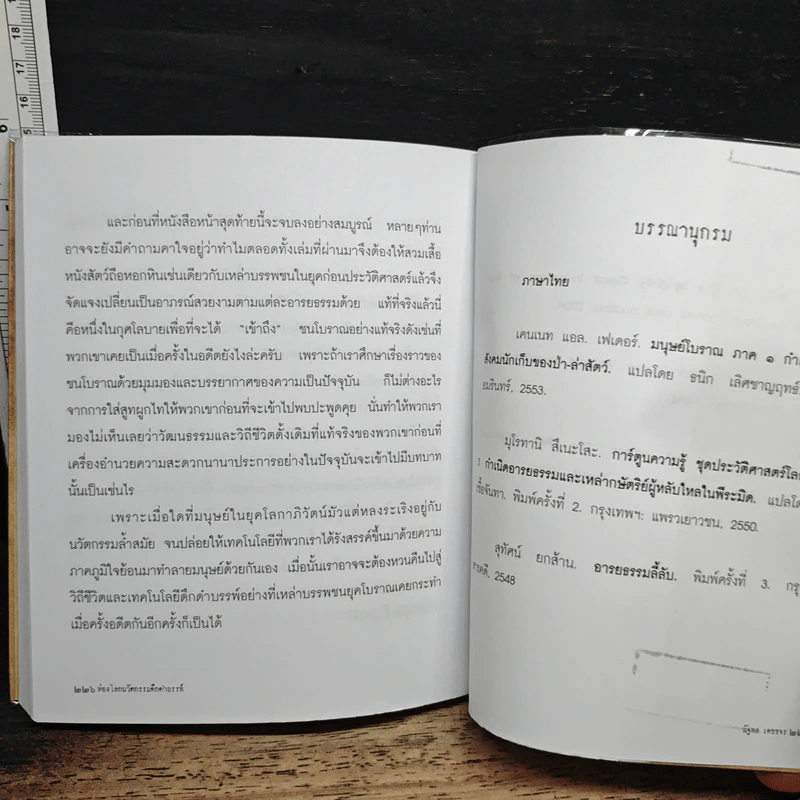 18
17
16
และก่อนที่หนังสือหน้าสุดท้ายนี้จะจบลงอย่างสมบูรณ์ หลายๆท่าน
อาจจะยังมีคำถามคาใจอยู่ว่าทำไมตลอดทั้งเล่มที่ผ่านมาจึงต้องให้สวมเสื้อ
หนังสัตว์ถือหอกหินเช่นเดียวกับเหล่าบรรพชนในยุคก่อนประวัติศาสตร์แล้วจึง
จัดแจงเปลี่ยนเป็นอาภรณ์สวยงามตามแต่ละอารยธรรมด้วย แท้ที่จริงแล้วนี่
คือหนึ่งในกุศโลบายเพื่อที่จะได้ "เข้าถึง" ชนโบราณอย่างแท้จริงดังเช่นที่
พวกเขาเคยเป็นเมื่อครั้งในอดีตยังไงล่ะครับ เพราะถ้าเราศึกษาเรื่องราวของ
ชนโบราณด้วยมุมมองและบรรยากาศของความเป็นปัจจุบัน ก็ไม่ต่างอะไร
จากการใส่สูทผูกไทให้พวกเขาก่อนที่จะเข้าไปพบปะพูดคุย นั่นทำให้พวกเรา
มองไม่เห็นเลยว่าวัฒนธรรมและวิถีชีวิตดั้งเดิมที่แท้จริงของพวกเขาก่อนที่
เครื่องอำนวยความสะดวกนานาประการอย่างในปัจจุบันจะเข้าไปมีบทบาท
นั้นเป็นเช่นไร
เพราะเมื่อใดที่มนุษย์ในยุคโลกาภิวัตน์มัวแต่หลงระเริงอยู่กับ
นวัตกรรมล้ำสมัย จนปล่อยให้เทคโนโลยีที่พวกเราได้รังสรรค์ขึ้นมาด้วยความ
ภาคภูมิใจย้อนมาทำลายมนุษย์ด้วยกันเอง เมื่อนั้นเราอาจจะต้องหวนคืนไปสู่
วิถีชีวิตและเทคโนโลยีดึกดำบรรพ์อย่างที่เหล่าบรรพชนยุคโบราณเคยกระทำ
เมื่อครั้งอดีตกันอีกครั้งก็เป็นได้
๒๒๖ ท่องโลกนวัตกรรมดึกดำบรรพ์
บรรณานุกรม
ภาษาไทย
เคนเนท แอล. เฟเดอร์. มนุษย์โบราณ ภาค ๑ กำเ
สังคมนักเก็บของป่า-ล่าสัตว์. แปลโดย ธนิก เลิศชาญฤทธ์.
อมรินทร์, 2553.
มุโรทานิ สึเนะโสะ. การ์ตูนความรู้ ชุดประวัติศาสตร์โลก
1 กำเนิดอารยธรรมและเหล่ากษัตริย์ผู้หลับใหลในพีระมิด. แปลโด
เชื้อจันทา. พิมพ์ครั้งที่ 2. กรุงเทพฯ: แพรวเยาวชน, 2550.
สุทัศน์ ยกส้าน. อารยธรรมลี้ลับ. พิมพ์ครั้งที่ 3. กรุ
สารคดี, 2548
ณัฐพล เดชขจร